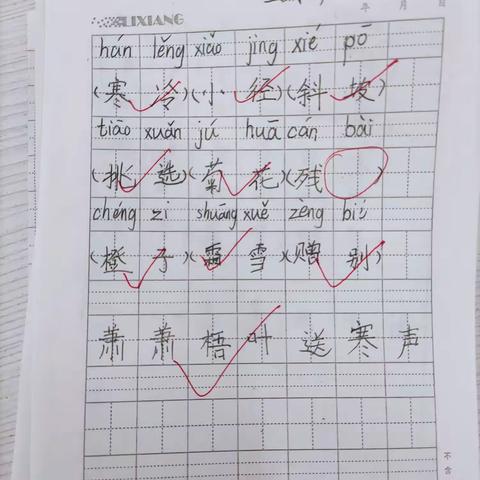 LIXIANG
年 月 日
hán lěng xiǎo jìng xié pō
(寒冷)(小径)(斜坡)
tiāo xuǎn jú huā cán bài
(挑选)(菊花)(残 )
chéng zi shuāng xuě zèng bié
(橙子)(霜雪)(赠别)
萧萧梧叶送寒声
不
含